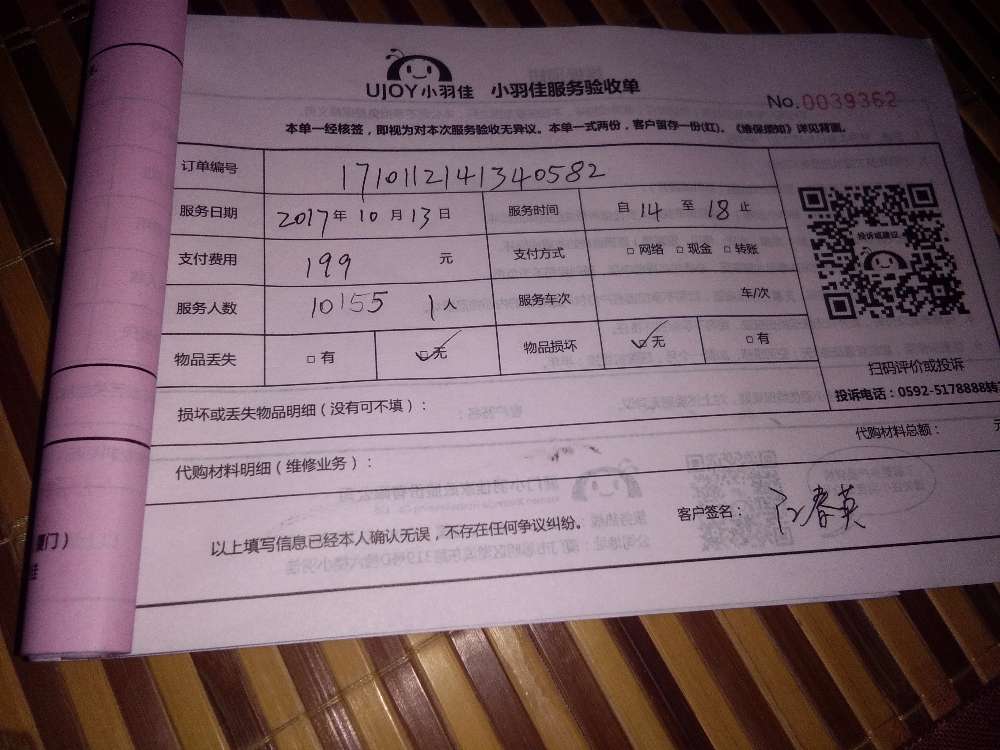 UJOY小羽佳 小羽佳服务验收单
No.0039362
本单一经核签，即视为对本次服务验收无异议。本单一式两份，客户留存一份(红)。《维保须知》详见背面。
订单编号 171011214134058２
服务日期 2017年10月13日 服务时间 自14至18止
支付费用 199元 支付方式 □网络 □现金 □转账
服务人数 10155 1人 服务车次 车/次
物品丢失 □有 ☑无 物品损坏 ☑无 □有
投诉或建议
扫码评价或投诉
投诉电话：0592-5178888转
损坏或丢失物品明细（没有可不填）：
代购材料明细（维修业务）： 代购材料总额： 元
以上填写信息已经本人确认无误，不存在任何争议纠纷。 客户签名：江春英
厦门）